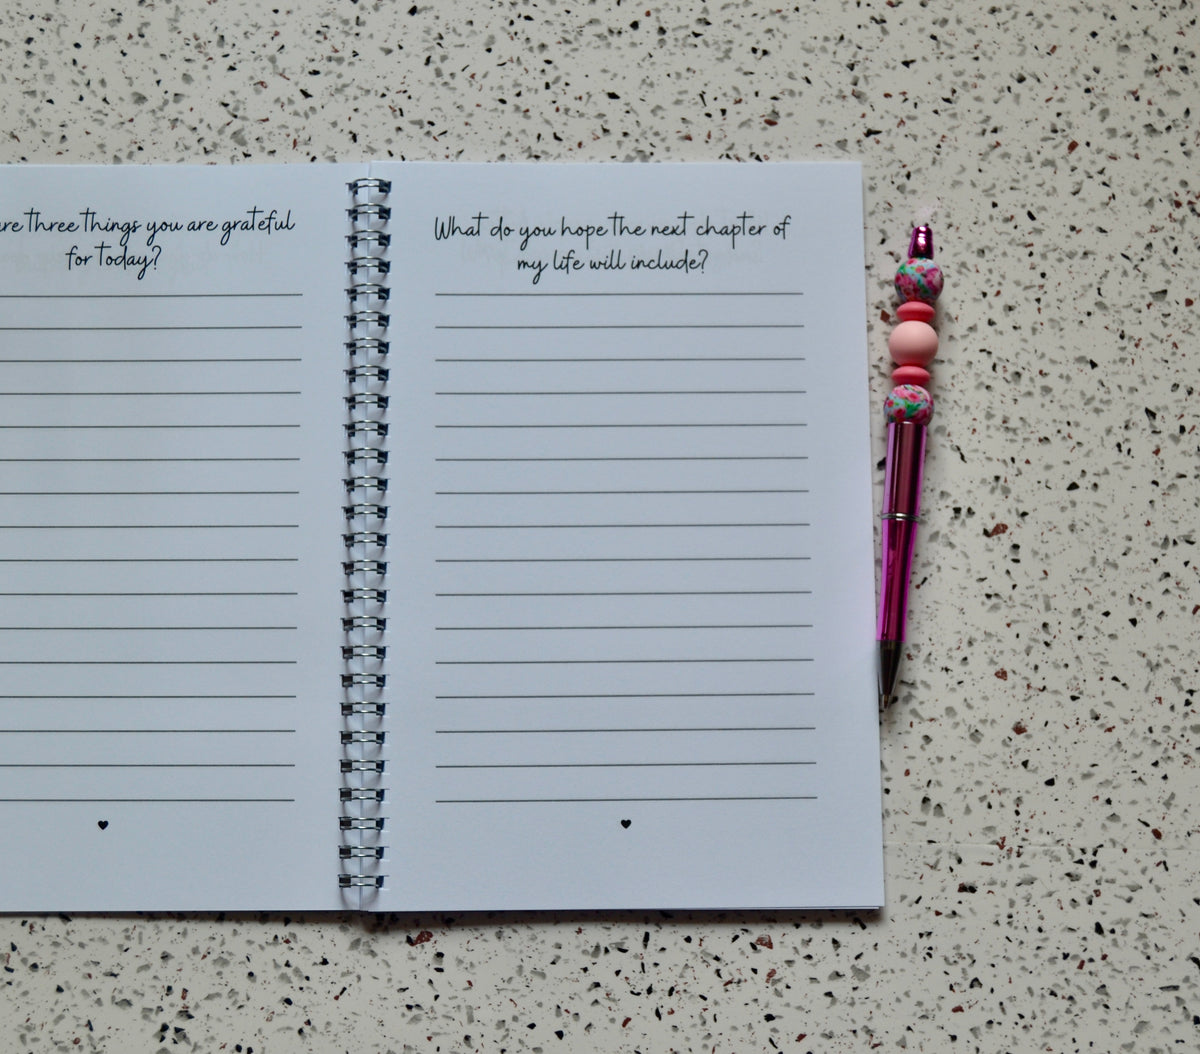 three things you are grateful
for today?
What do you hope the next chapter of
my life will include?